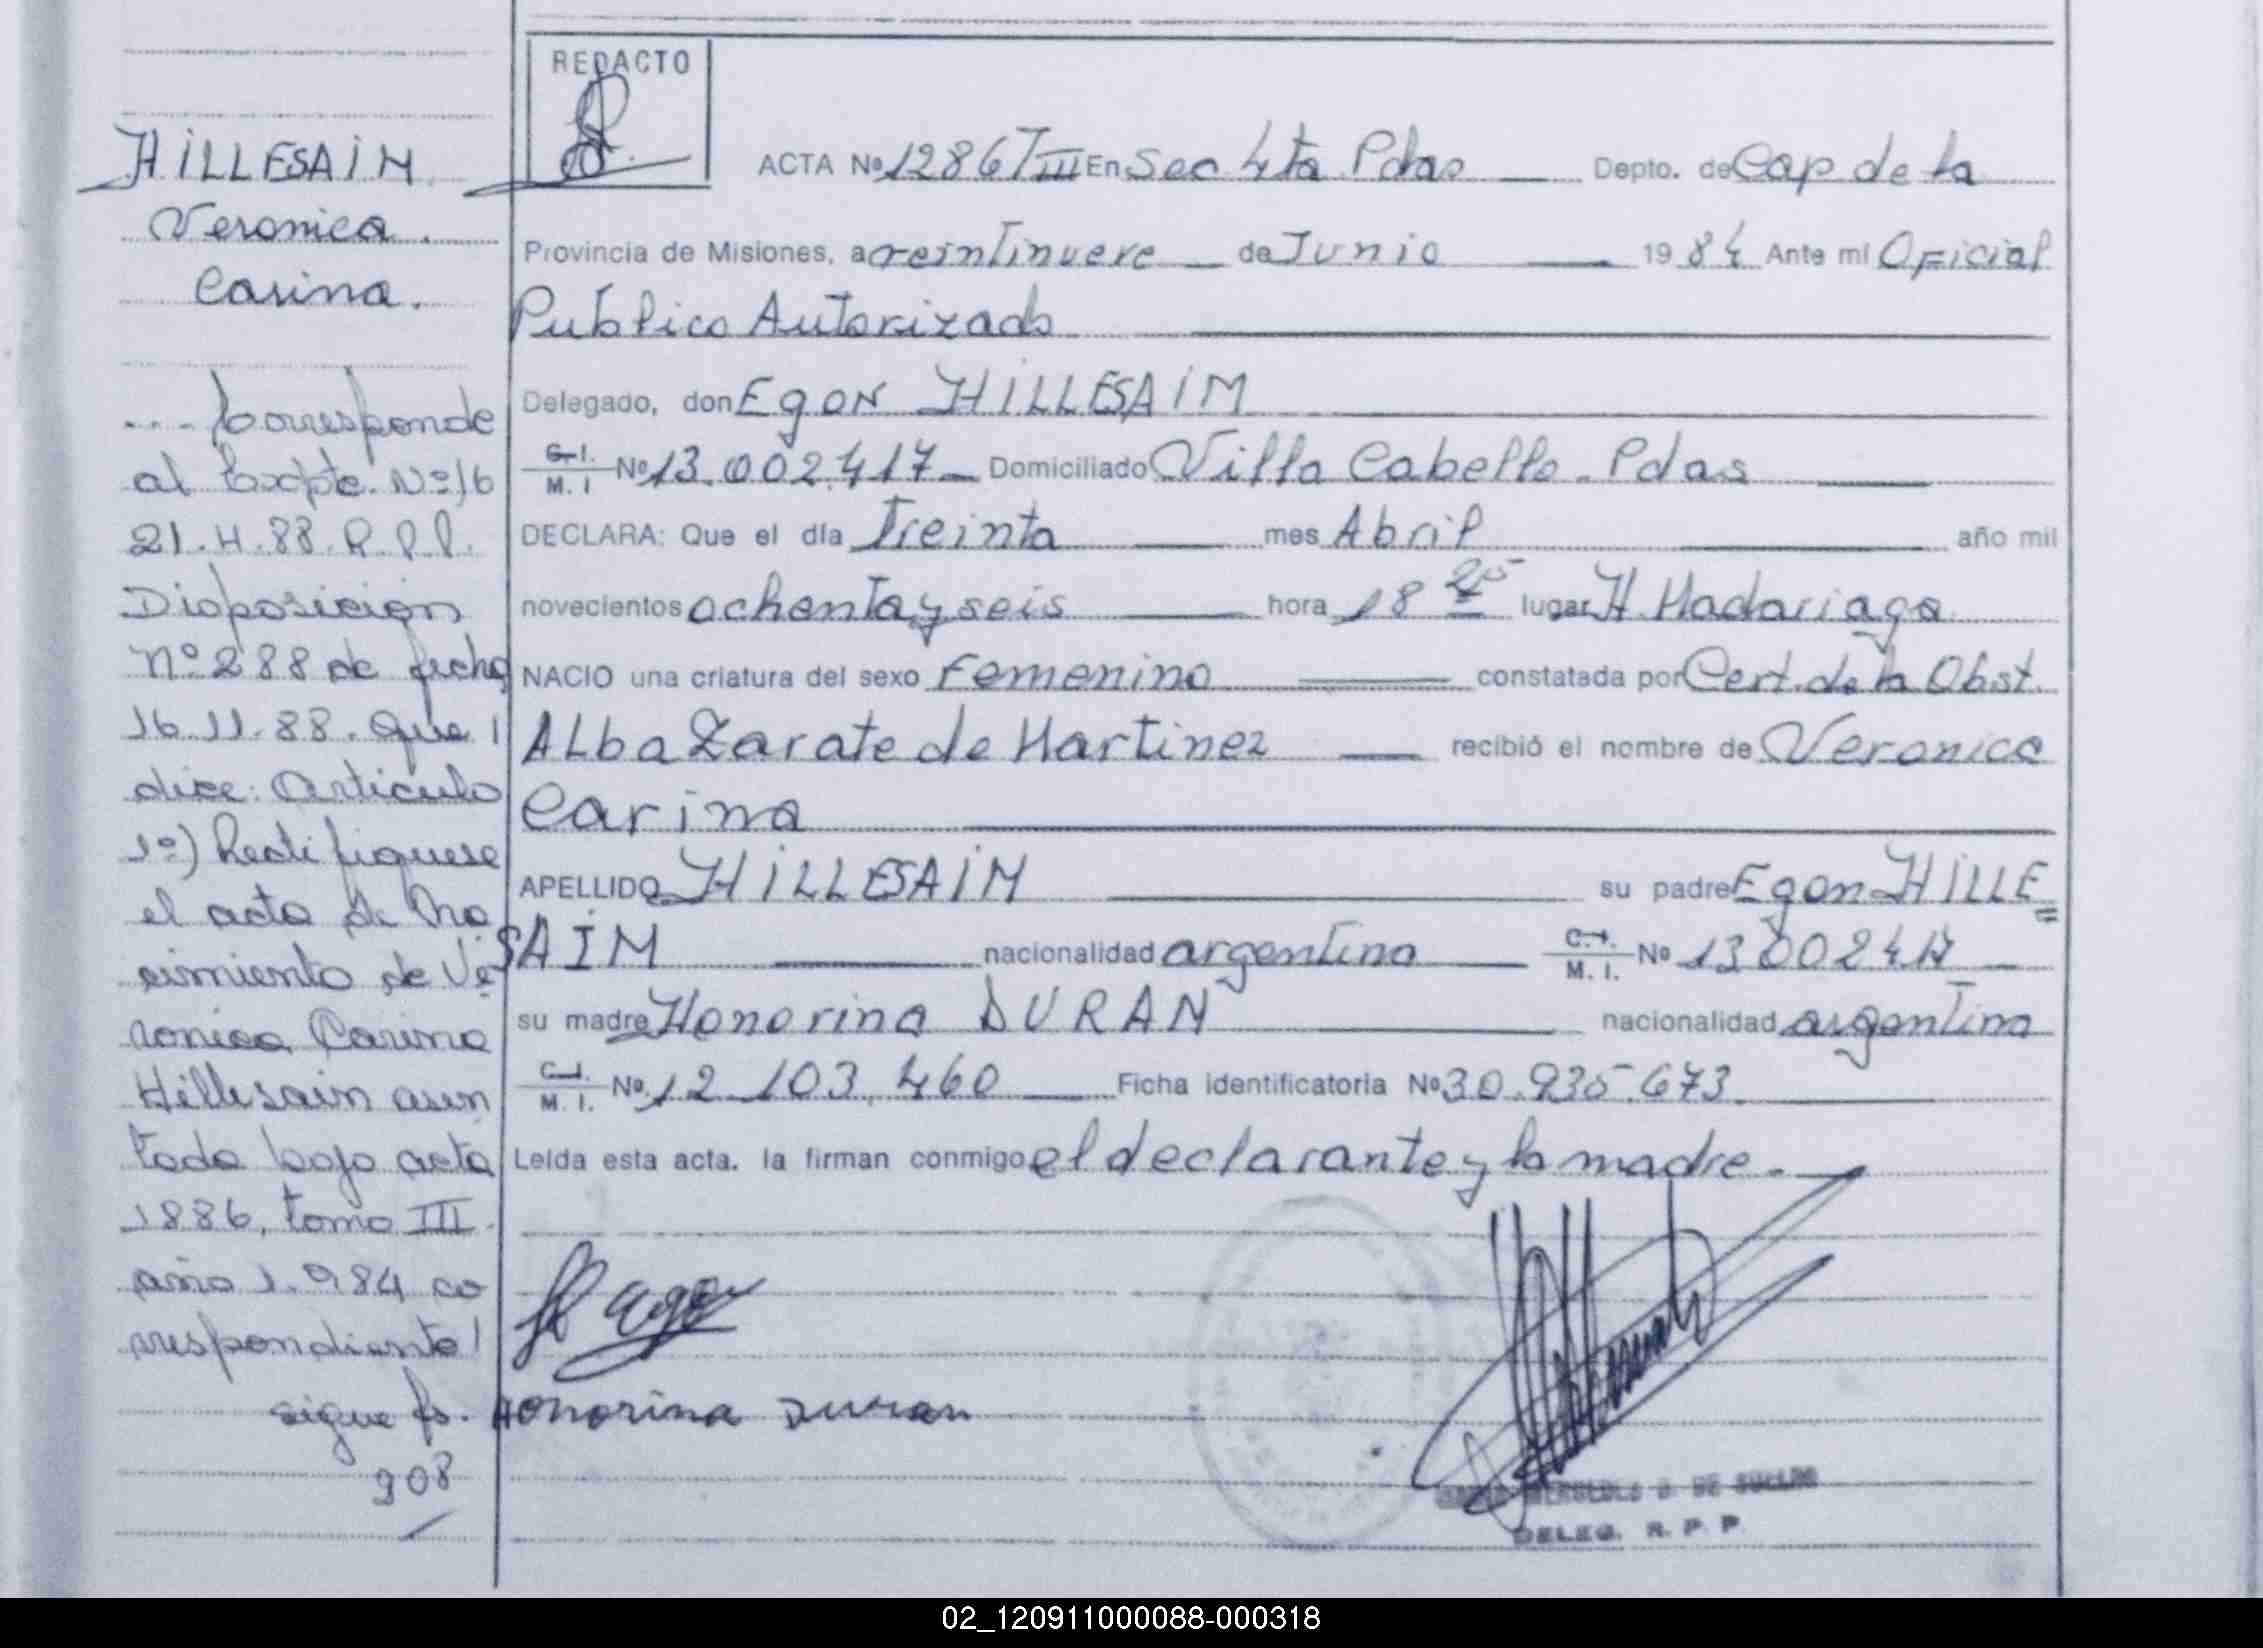 HILLESAIM
Veronica
Carina.
.... Corresponde
al Expte. Nº 16
21.H.88.R.P.P.
Disposicion
Nº 288 de fecha
16.11.88. que
dice: Articulo
1º) Rectifiquese
el acta de Na
cimiento de Ve
ronica Carina
Hillesaim asen
tada bajo acta
1886, tomo III
año 1.984 co
rrespondiente
sigue fs.
908
REDACTO
ACTA Nº 1286 T III En Sec 4ta Pdas Depto. de Cap de la
Provincia de Misiones, a veintinueve de Junio 1984 Ante mi Oficial
Publico Autorizado
Delegado, don Egon HILLESAIM
C.I. M.I Nº 13.002.417 Domiciliado Villa Cabello - Pdas
DECLARA: Que el día Treinta mes Abril año mil
novecientos ochenta y seis hora 18 25 lugar H. Madariaga
NACIO una criatura del sexo Femenino constatada por Cert. de la Obst.
Alba Zarate de Martinez recibió el nombre de Veronica
Carina
APELLIDO HILLESAIM su padre Egon HILLE=
SAIM nacionalidad argentina C.I. M.I. Nº 13002417
su madre Honorina DURAN nacionalidad argentina
C.I. M.I. Nº 12.103.460 Ficha identificatoria Nº 30.935.673
Leída esta acta. la firman conmigo el declarante y la madre.
Honorina Duran
DELEG. R. P. P.
02_120911000088-000318